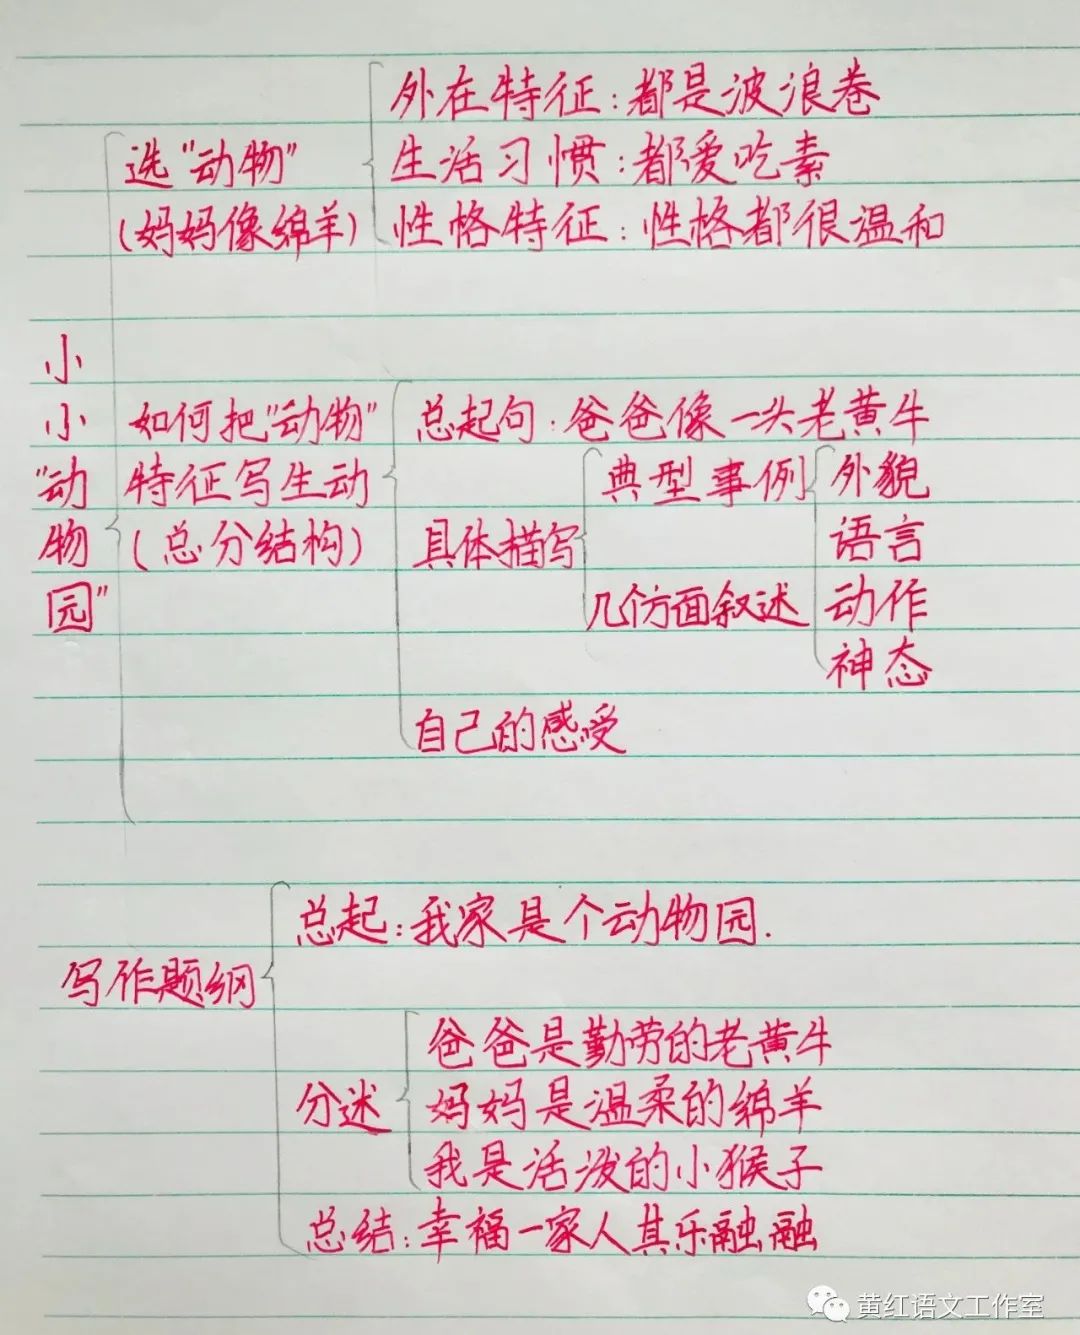 外在特征：都是波浪卷
选"动物"
生活习惯：都爱吃素
(妈妈像绵羊)
性格特征：性格都很温和
小小"动物园"
如何把"动物"
特征写生动
(总分结构)
总起句：爸爸像一头老黄牛
具体描写
典型事例
几个方面叙述
外貌
语言
动作
神态
自己的感受
写作题纲
总起：我家是个动物园.
分述
爸爸是勤劳的老黄牛
妈妈是温柔的绵羊
我是活泼的小猴子
总结：幸福一家人其乐融融
黄红语文工作室